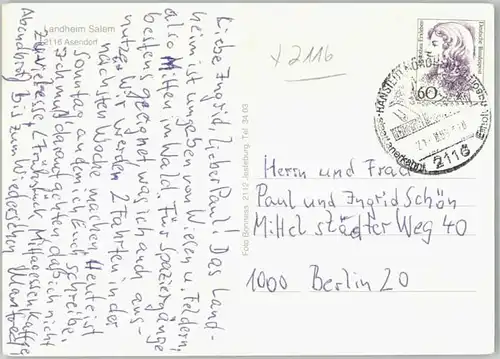 Landheim Salem
2116 Asendorf
Liebe Ingrid, lieber Paul! Das Land-
heim ist umgeben von Wiesen u. Feldern,
also Mitten im Wald. Für Spaziergänge
bestens geeignet was ich auch aus-
nutze. Wir werden 2 Fahrten in der
nächsten Woche machen. Heute ist
Sonntag an dem ich Euch schreibe.
Ich muß darauf achten, daß ich nicht
zu viel esse. 2 Frühstück, Mittagessen, Kaffee
Abendbrot. Bis zum Wiedersehen Manfred
Foto Bonness, 2112 Jesteburg, Tel. 34 63
x 2116
Deutsche Bundespost
60
HANSTEDT
2116
Herrn und Frau
Paul und Ingrid Schön
Mittelstädter Weg 40
1000 Berlin 20